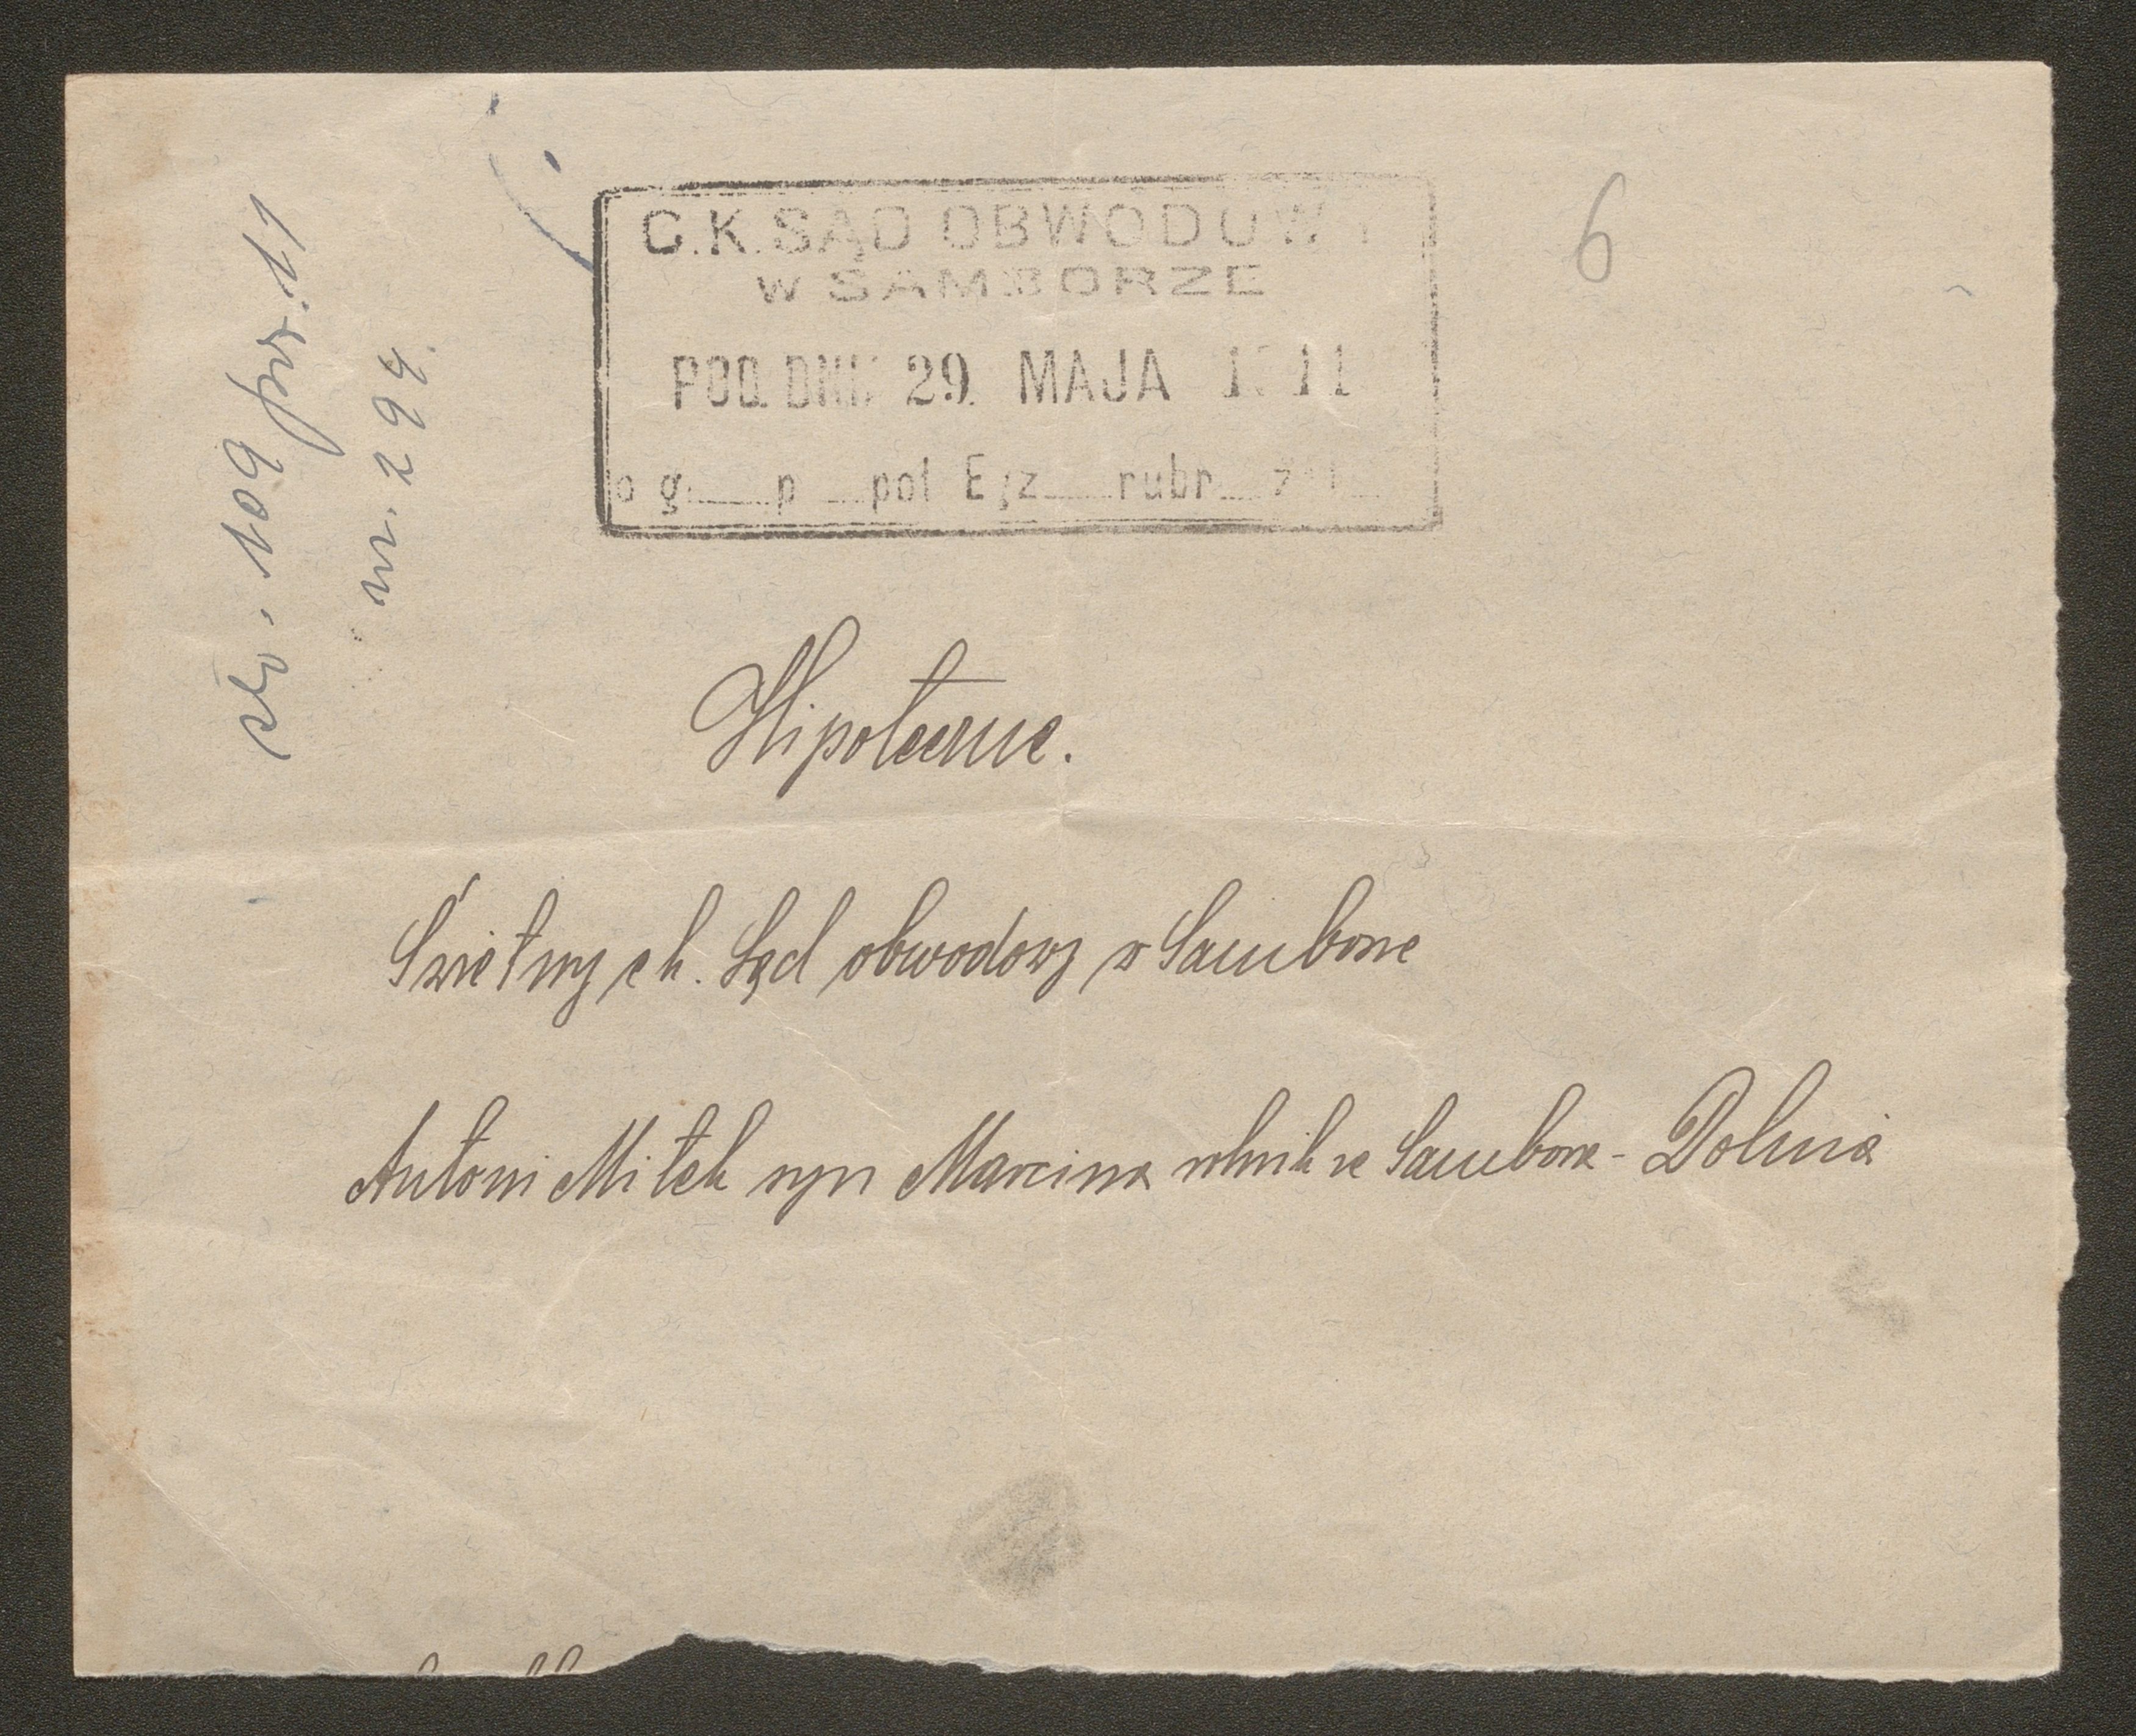 C.K. SĄD OBWODOWY
W SAMBORZE
6
POD. DNIA 29. MAJA 1911
o g. p pol Egz rubr. zał
109 prs. 11
nr. 294
Hipoteczne.
Świetny c k. Sąd obwodowy w Samborze
Antoni Mitek syn Marcina rolnik w Samborze - Dolnia